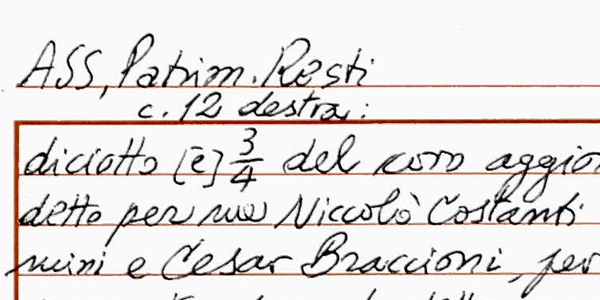 ASS, Patrim. Resti
c. 12 destra:
diciotto [è] 3/4 del coro aggio
detto per me Niccolò Costanti
nini e Cesar Braccioni, per